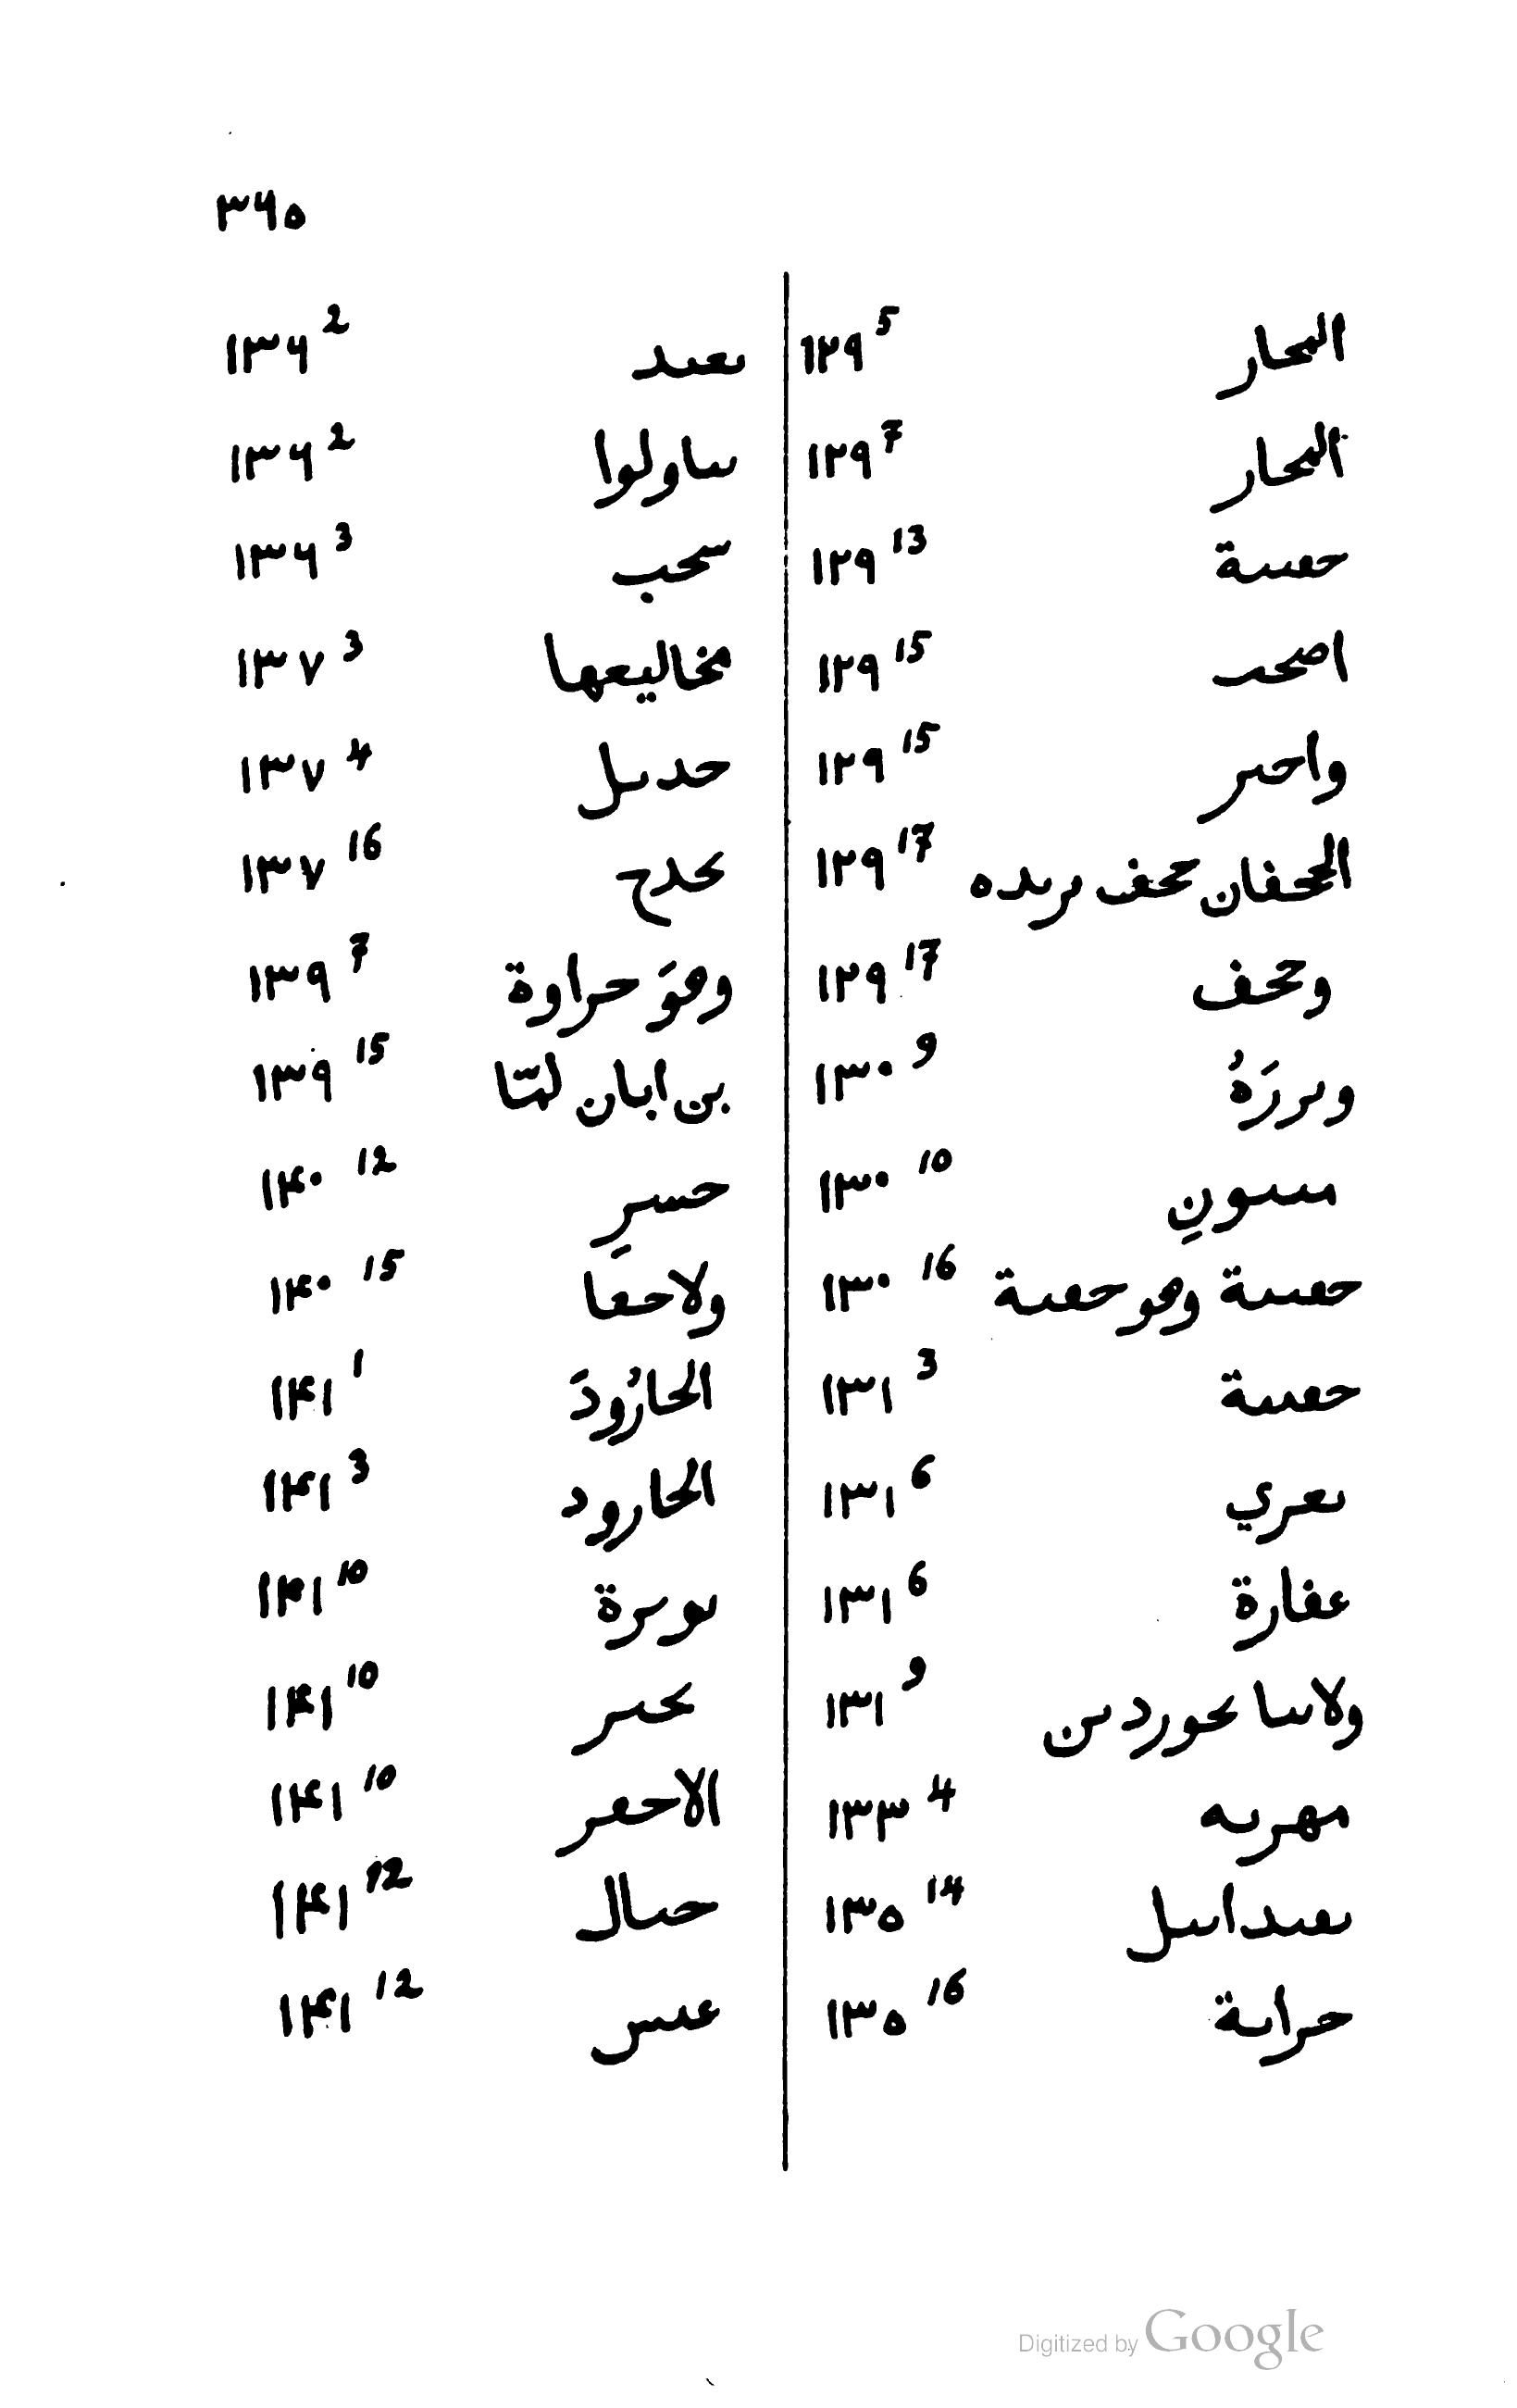 ٣٦٥
البحار ١٢٩ 5
البحار ١٢٩ 7
حعىىة ١٢٩ 13
اصحىد ١٢٩ 15
واحىر ١٢٩ 15
الححفان ححف ىرىده ١٢٩ 17
وححف ١٢٩ 17
وىررَهُ ١٣٠ 9
مىىىونِ ١٣٠ 10
حعىىة وهو حعىة ١٣٠ 16
حعىىة ١٣١ 3
ىعري ١٣١ 6
عفارة ١٣١ 6
ولاىىا ىحورد ىىن ١٣١ 9
مهرىه ١٣٣ 4
ىعىد اىىل ١٣٥ 14
حراىة ١٣٥ 16
ىعىد ١٣٦ 2
ىىاولوا ١٣٦ 2
سحب ١٣٦ 3
مخاليعها ١٣٧ 3
حدىىل ١٣٧ 4
ىحدح ١٣٧ 16
وهوَ حراوة ١٣٩ 7
بن ابان لهتّا ١٣٩ 15
حسىر ١٤٠ 12
ولاحقَا ١٤٠ 15
الحارُودَ ١٤١ 1
الحارود ١٤١ 3
ىوىرة ١٤١ 10
ىحىىر ١٤١ 10
الاحعر ١٤١ 10
حىال ١٤١ 12
عىىس ١٤١ 12
Digitized by Google